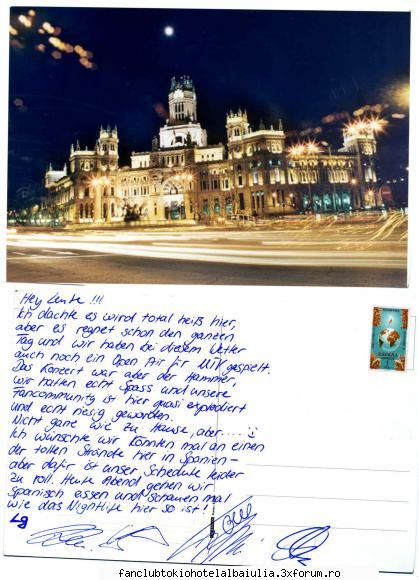 Hey Leute !!!
Ich dachte es wird total heiß hier,
aber es regnet schon den ganzen
Tag und wir haben bei diesem Wetter
auch noch ein Open Air für MTV gespielt.
Das Konzert war aber der Hammer,
wir hatten echt Spass und unsere
Fancommunity ist hier quasi explodiert
und echt riesig geworden.
Nicht ganz wie zu Hause, aber....
Ich wünschte wir könnten mal an einen
der tollen Strände hier in Spanien-
aber dafür ist unser Schedule leider
zu voll. Heute Abend gehen wir
Spanisch essen und schauen mal
wie das Nightlife hier so ist!
ESPAÑA
fanclubtokiohotelalbaiulia.3xforum.ro